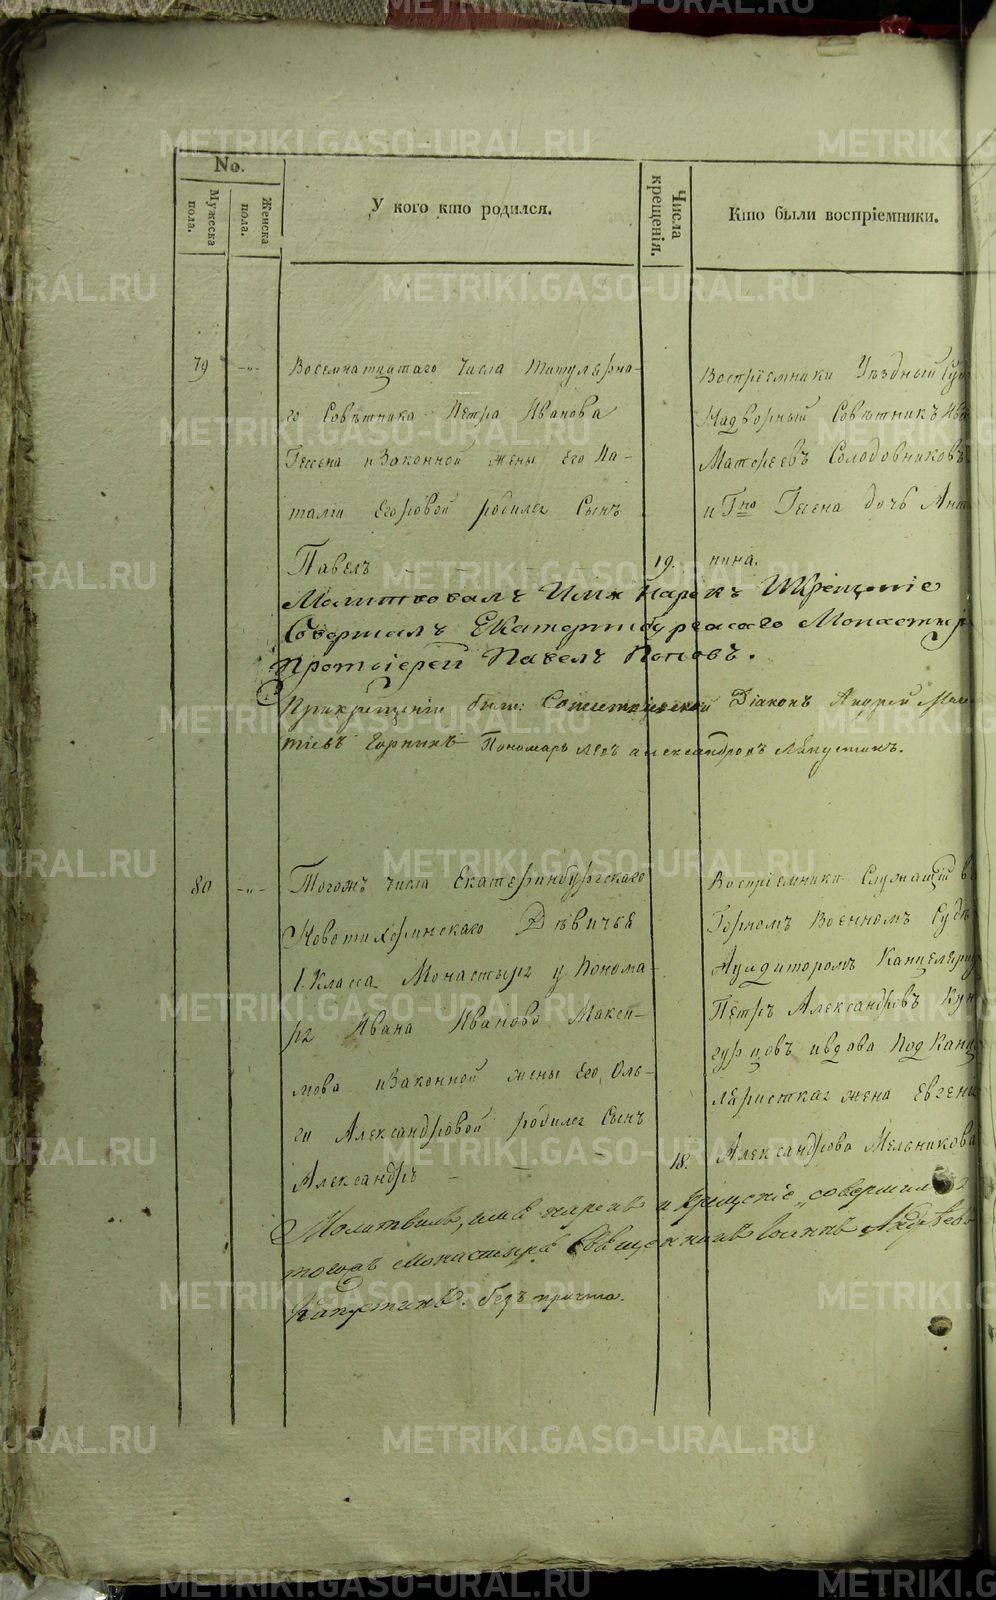 No.
Мужеска пола.
Женска пола.
У кого кто родился.
Числа крещенія.
Кто были воспріемники.
79
Восемнатцатаго числа Титулярна-
го Совѣтника Петра Иванова
Гесена и Законной жены его На-
таліи Егоровой родился Сынъ
Павелъ
19.
Воспріемники Уѣздный Суд
Надворный Совѣтникъ Ив
Матфеевъ Солодовниковъ
и Гна Гесена дочь Анто
нина.
Молитвовалъ Имя Нарекъ И Крещеніе
Совершалъ Екатеринбургскаго Монастыря
Протоіерей Павелъ Поповъ.
При крещеніи были: Діаконъ Андрей
Пономарь александровъ
80
Тогожъ числа Екатеринбургскаго
Новотихвинскаго Дѣвичья
1. Класса Монастыря у Понома-
ря Ивана Иванова Макси-
мова и Законной жены его Оль-
ги Александровой родился Сынъ
Александръ
18.
Воспріемники Служащій в
Горномъ Военномъ Судѣ
Аудиторомъ Канцеляри
Петръ Александровъ Кун
гурцовъ и вдова Подканце
ляристкая жена Евгені
Александрова Мельникова
Молитвилъ, имя нарекъ и крещеніе совершилъ
тогожъ монастыря Священникъ Іоаннъ Андреевъ
Капустинъ. безъ причта.
METRIKI.GASO-URAL.RU